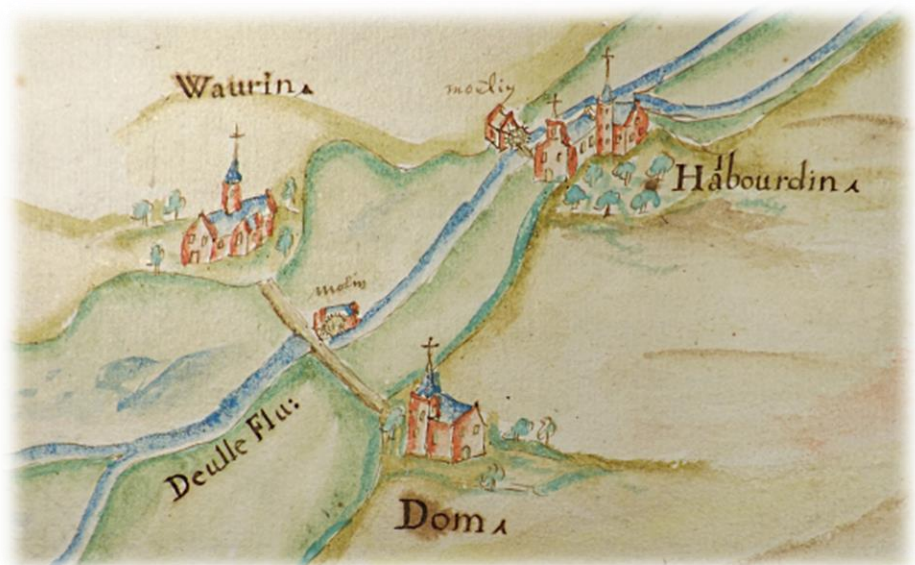 Waurin
moelin
Hábourdin
molin
Deulle Flu:
Dom